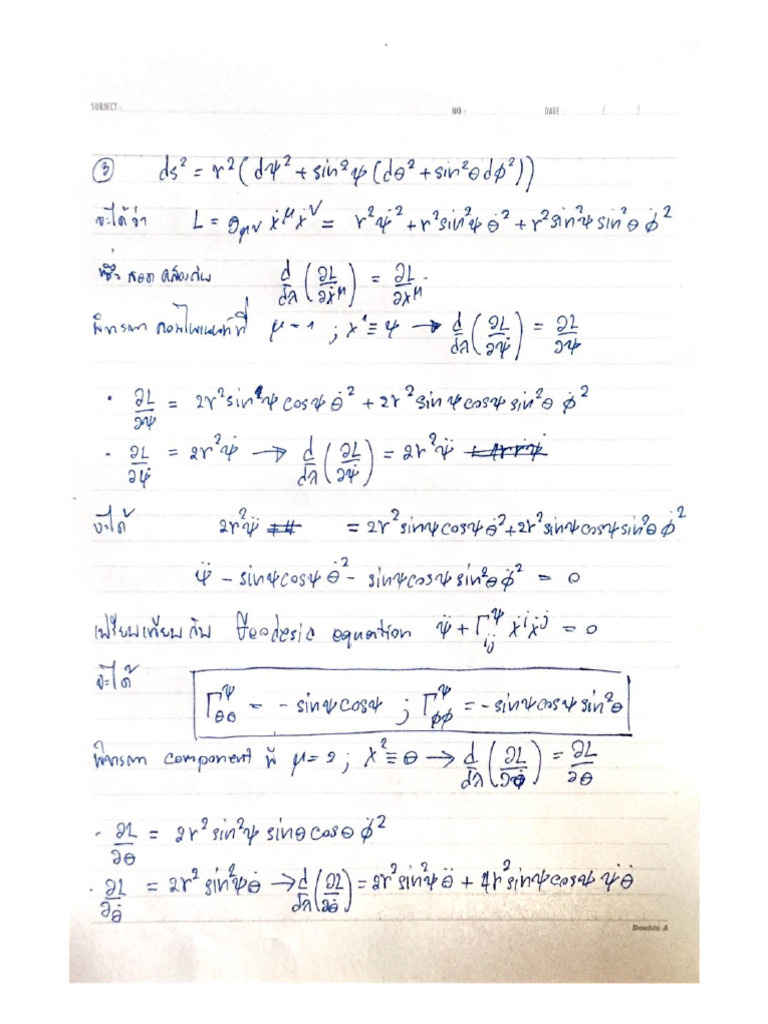 SUBJECT : NO : DATE : / /
③ ds² = r²(dψ² + sin²ψ (dθ² + sin²θ dφ²))
จะได้ว่า L = g_μν ẋ^μ ẋ^ν = r²ψ̇² + r²sin²ψ θ̇² + r²sin²ψ sin²θ φ̇²
ซึ่ง สอดคล้องกับ d/dλ (∂L/∂ẋ^μ) = ∂L/∂x^μ
พิจารณา คอมโพเนนท์ที่ μ = 1 ; x¹ ≡ ψ → d/dλ (∂L/∂ψ̇) = ∂L/∂ψ
• ∂L/∂ψ = 2r²sinψ cosψ θ̇² + 2r²sinψ cosψ sin²θ φ̇²
• ∂L/∂ψ̇ = 2r²ψ̇ → d/dλ (∂L/∂ψ̇) = 2r²ψ̈
จะได้ 2r²ψ̈ = 2r²sinψcosψ θ̇² + 2r²sinψcosψsin²θ φ̇²
ψ̈ - sinψcosψ θ̇² - sinψcosψsin²θ φ̇² = 0
เปรียบเทียบกับ Geodesic equation ψ̈ + Γ^ψ_ij ẋ^i ẋ^j = 0
จะได้
Γ^ψ_θθ = - sinψcosψ ; Γ^ψ_φφ = - sinψcosψ sin²θ
พิจารณา component ที่ μ = 2 ; x² ≡ θ → d/dλ (∂L/∂θ̇) = ∂L/∂θ
• ∂L/∂θ = 2r²sin²ψ sinθ cosθ φ̇²
• ∂L/∂θ̇ = 2r²sin²ψ θ̇ → d/dλ (∂L/∂θ̇) = 2r²sin²ψ θ̈ + 4r²sinψ cosψ ψ̇ θ̇
Double A